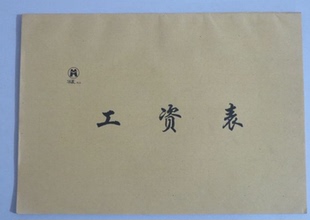 工资表